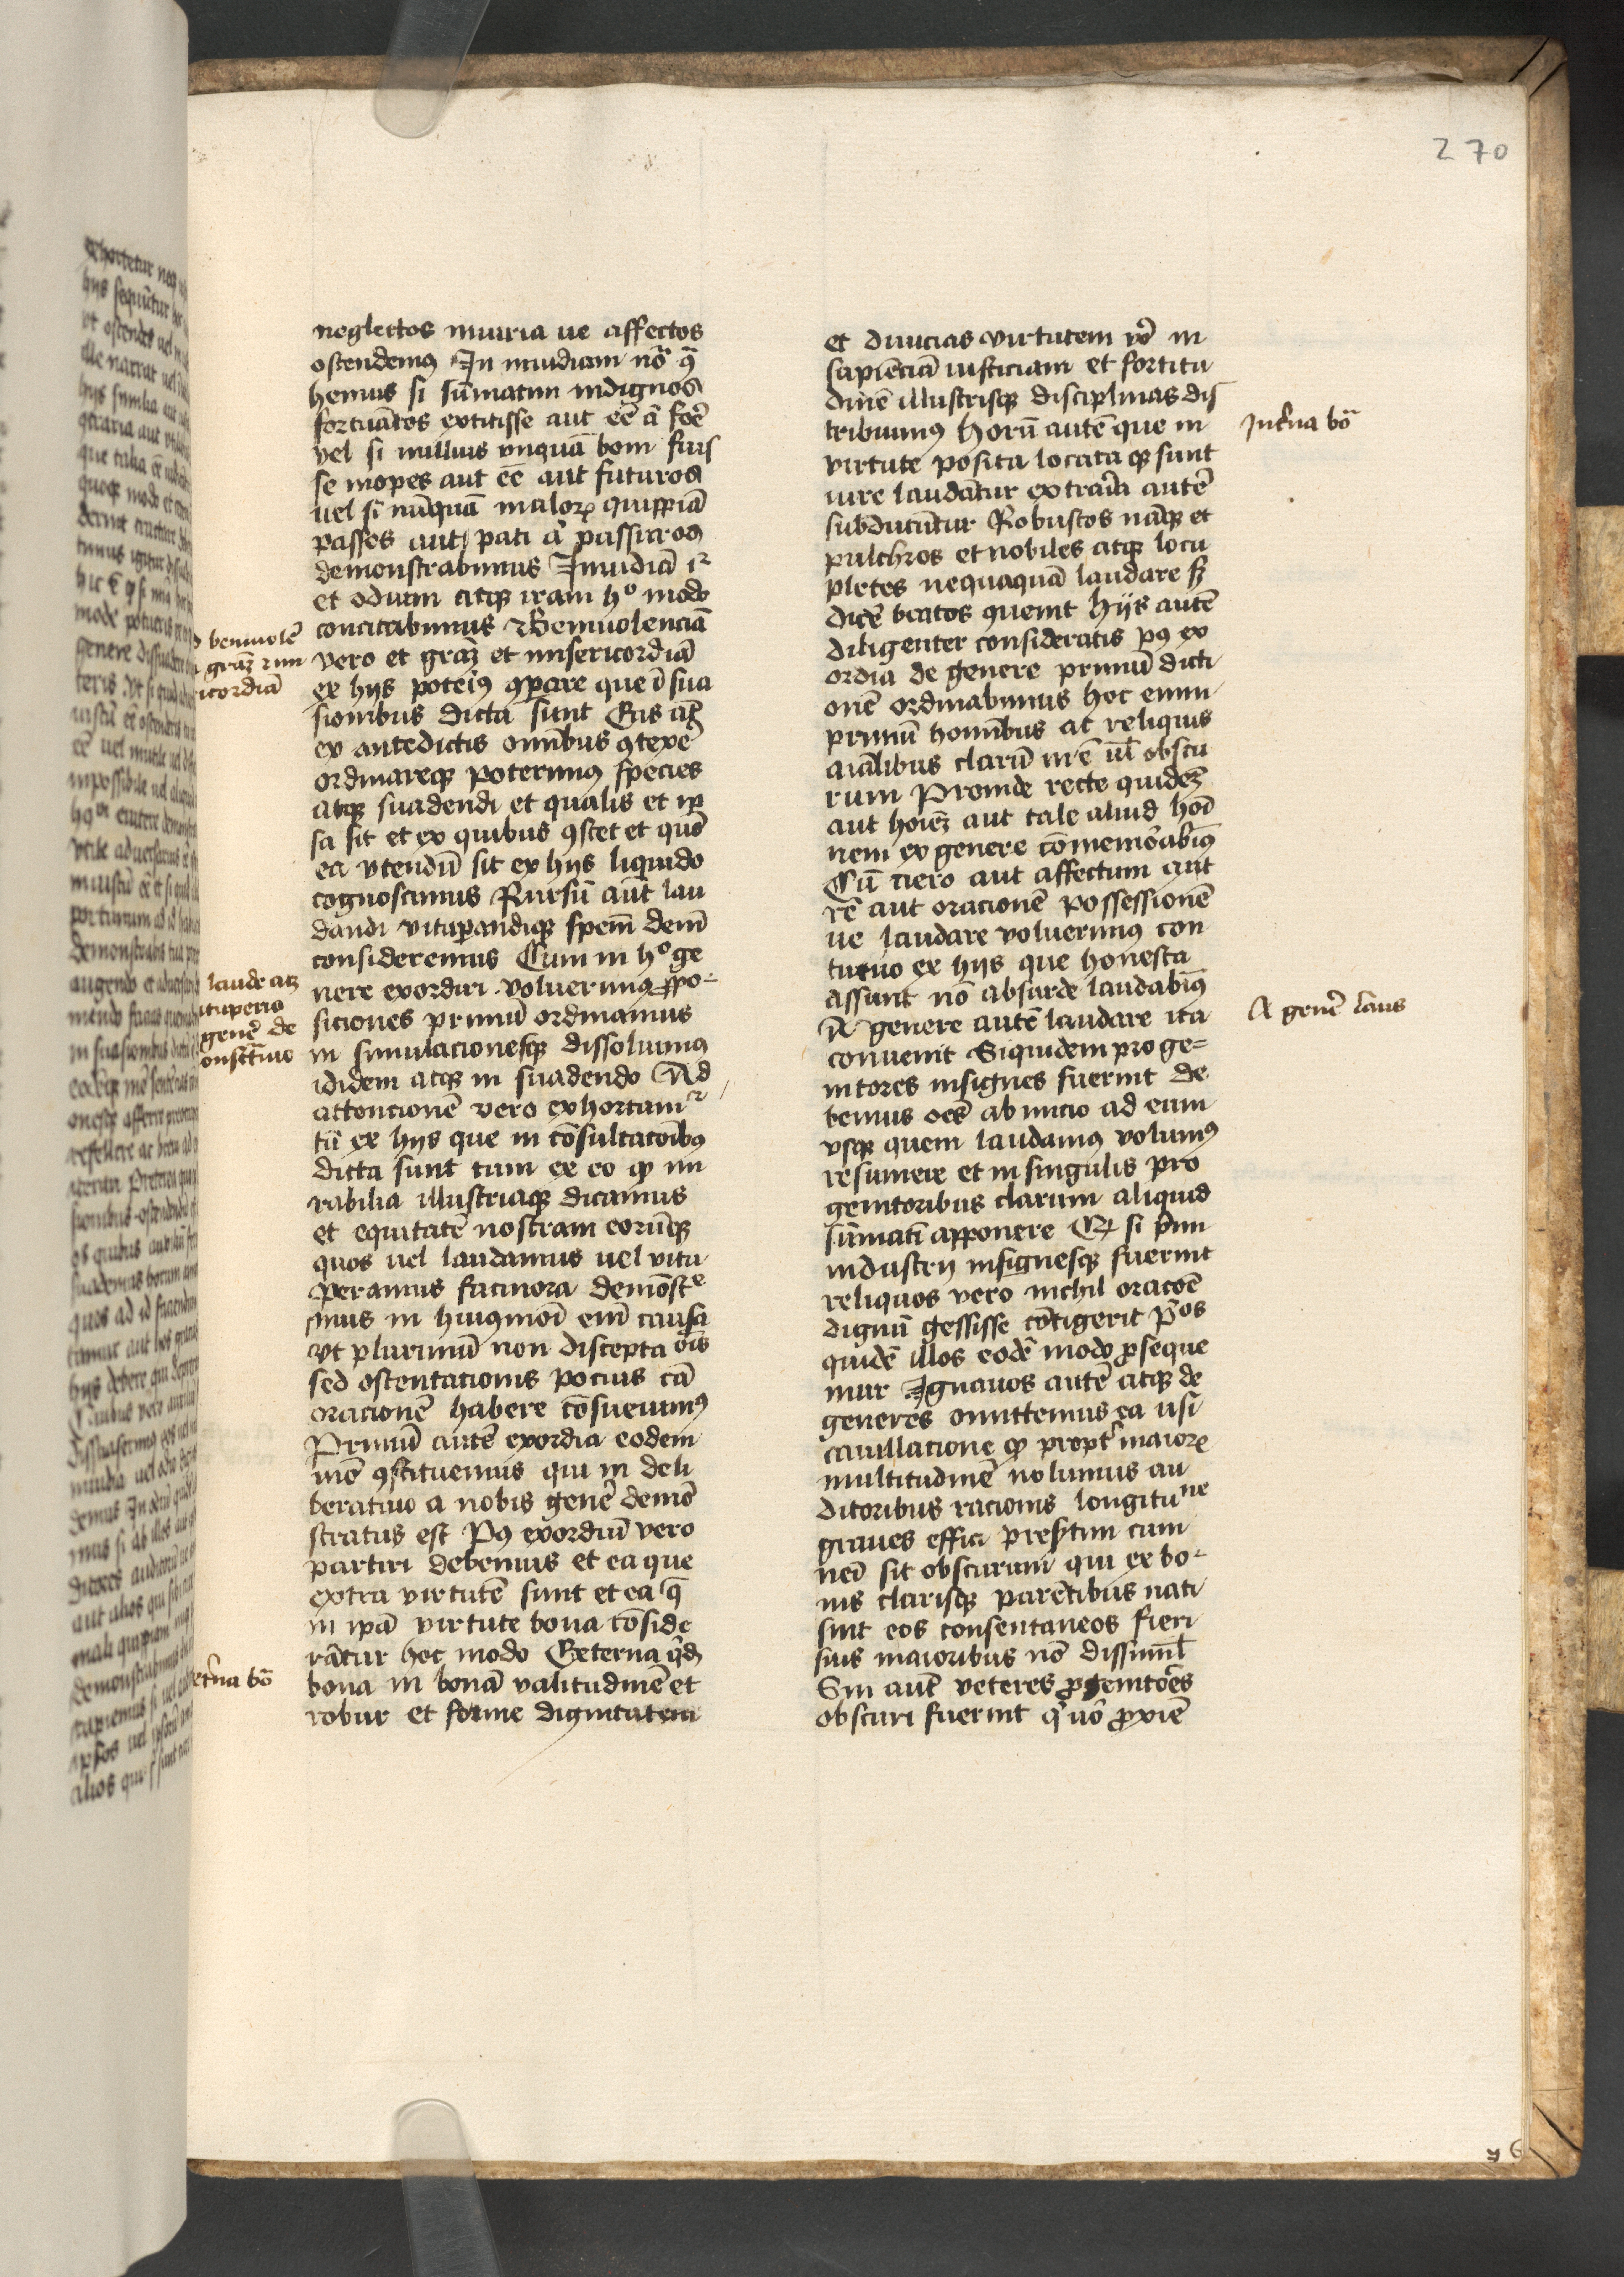 270
neglectos iniuria ue affectos
ostendemus In inuidiam nō q̄
hemus si sūmatim indignos
fortuātos extitisse aut eē a᷑ foē
vel si nullius vnquā boni fuis
se inopes aut eē aut futuros
uel si nūquā maloꝝ quippiā
passos aut pati a᷑ passuros
demonstrabimus Inuidiā
et odium atqꝫ iram hº modo
concitabimus Beniuolenciā
vero et graꝫ et misericordiā
ex hijs poteiꝰ ꝯpare que ī sua
sionibus dicta sunt
ex antedictis omībus ꝯtexē
ordinareqꝫ poterimꝰ species
atqꝫ suadendi et qualis et ip
sa sit et ex quibus ꝯstet et quō
ea vtendū sit ex hijs liquido
cognoscimus Rursū aūt lau
dandi vituꝑandiqꝫ spem̄ dem̄
consideremus Cum in hº ge
nere exordiri voluerimꝰ ꝓpo-
siciones primū ordinamus
in simulacionesqꝫ dissoluimꝰ
ididem atqꝫ in suadendo Ad
attoncionē vero exhortam᷑
tū ex hijs que in cōsultatoībꝰ
dicta sunt tum ex eo ꝙ mi
rabilia illustriaqꝫ dicamus
et equitatē nostram eorūqꝫ
quos uel laudamus uel vitu
peramus facinora demōst͏ͤ
mus in huiꝰmōi em̄ causa
vt plurimū non discepta oīs
sed ostentacionis pocius cā
oracionē habere cōsueuimꝰ
Primū autē exordia eodem
mō ꝯstituemus qui in deli
beratiuo a nobis genē demō
stratus est Pꝰ exordiū vero
partiri debemus et ea que
extra virtutē sunt et ea q̄
in ipā virtute bona cōside
rātur hoc modo Externa qͥdē
bona in bonā valitudinē et
robur et forme dignitatem
et diuicias virtutem vō in
sapienciā iusticiam et fortitu
dinē illustrisqꝫ disciplinas dis
tribuimꝰ Horū autē que in
virtute posita locataqꝫ sunt
iure laudātur extraria autē
subducūtur Robustos nāqꝫ et
pulchros et nobiles atqꝫ locu
pletes nequaquā laudare sꝫ
dicē beatos queunt Hijs autē
diligenter consideratis pꝰ ex
ordia de genere primū dicti
onē ordinabimus hoc enim
primū hominibus at reliquis
aīalibus clarū in ē ul̄ obscu
rum Proinde recte quideꝫ
aut hoīeꝫ aut tale aliud hoī
nem ex genere cōmemorabimꝰ
Cū uero aut affectum aut
rē aut oracionē possessionē
ue laudare voluerimꝰ con
tutuo ex hijs que honesta
assunt nō absurde laudabimꝰ
A genere autē laudare ita
conuenit Siquidem proge=
nitores insignes fuerint de
bemus oēs ab inicio ad eum
vsqꝫ quem laudamꝰ volumꝰ
resumere et in singulis pro
genitoribus clarum aliquid
sūmatī apponere Et si prim
industrij insignesqꝫ fuerint
reliquos vero nichil oracōē
dignū gessisse cōtigerit pͥos
quidē illos eodē modo ꝓseque
mur Ignauos autē atqꝫ de
generes omittemus ea usi
cauillacione ꝙ propt᷑ maiorē
multitudinē nolumus au
ditoribus racionis longitune
graues effici presertim cum
nei sit obscurum qui ex bo-
nis clarisqꝫ parētibus nati
sint eos consentaneos fieri
suis maioribus nō dissimil
Sin aut̄ veteres ꝓgenitōes
obscuri fuerint qͥ uō ꝓxīe
beniuolē
graꝫ
icordiā
laude atꝫ
ituperio
genē de
onstͬatiuo
et᷑na bō
Int᷑na bō
A genē laus